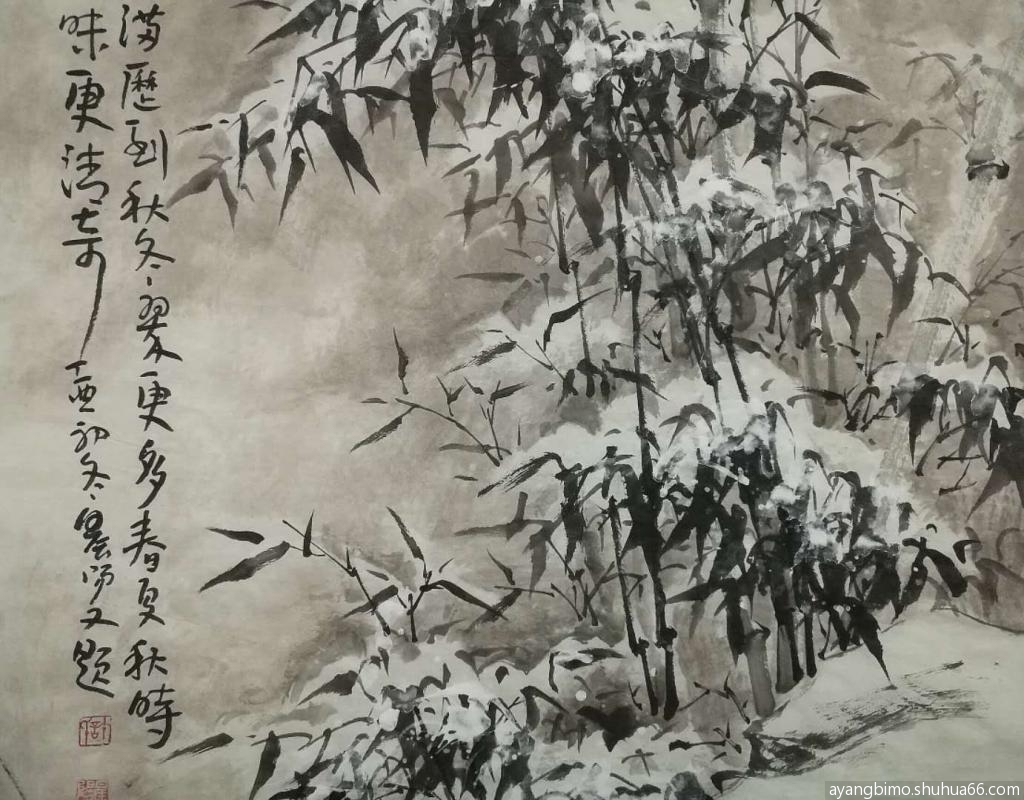 满歷到秋冬翠更多春夏秋時
味更清奇 丁酉初冬又题
ayangbimo.shuhua66.com